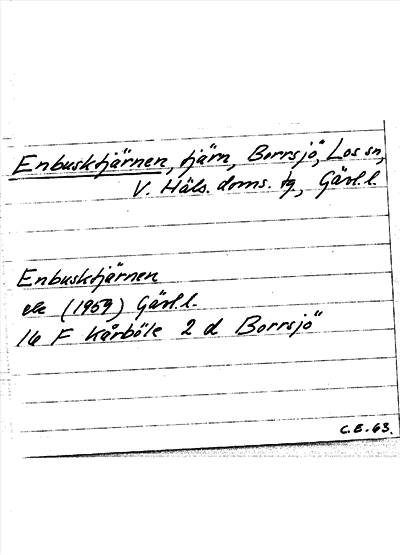 Enbusktjärnen, tjärn, Borrsjö, Los sn,
V. Häls. doms. tg, Gävl.l.
Enbusktjärnen
ek (1959) Gävl.l.
16 F Kårböle 2 d Borrsjö
C.E.63.